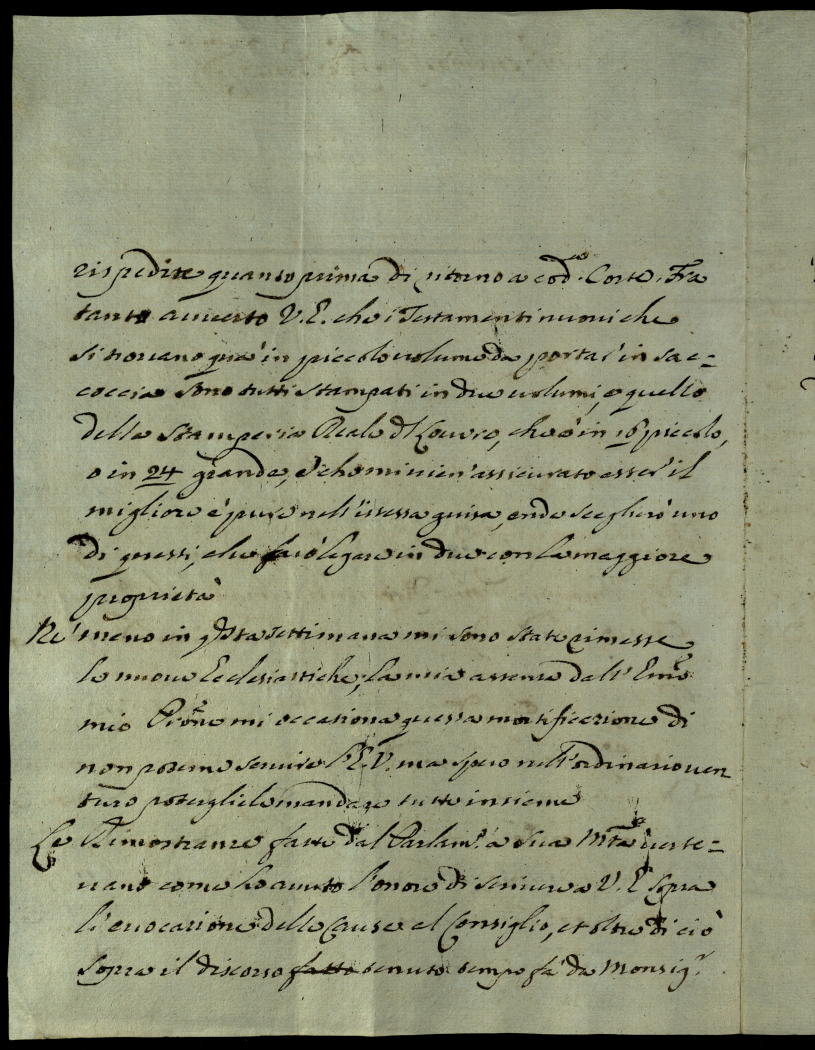 rispedire quanto prima di ritorno a cod.ª Corte. Fra
tanto avverto V. E. che i Testamenti nuovi che
si trovano quà in piccolo volume da portar' in sac=
coccia sono tutti stampati in due volumi, e quello
della Stamperia Reale d Louvre, che è in 16 piccolo,
o in 24 grande, e che mi vien' assicurato esser' il
migliore è pure nell'istessa guisa, onde sceglierò uno
di questi, che farò legare in due con la maggiore
proprietà
Ne' meno in q.sta settimana mi sono state rimesse
le nuove Ecclesiastiche, la mia assenza dall' Em.º
mio P.rone mi occasiona questa mortificazione di
non poterne servire l'E. V. ma spero nell'ordinario ven
turo potergliele mandare tutte insieme
Le Rimostranze fatte dal Parlam.º a Sua M.tà verte=
vano come ho avuto l'onore di scrivere a V. E. sopra
l'evocazione delle Cause al Consiglio, et oltre di ciò
sopra il discorso fatto tenuto tempo fa da Monsig.r